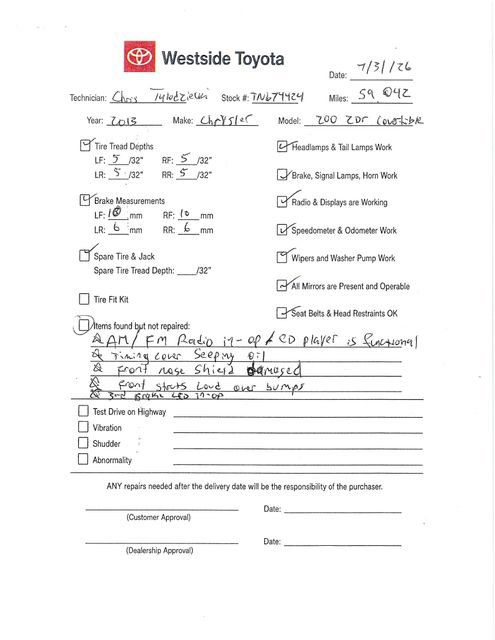 Westside Toyota
Date: 7/31/26
Technician: Chris Stock #: TN679424 Miles: 59 042
Year: 2013 Make: Chrysler Model: 200 2DR Convertible
Tire Tread Depths
LF: 5 /32" RF: 5 /32"
LR: 5 /32" RR: 5 /32"
Headlamps & Tail Lamps Work
Brake, Signal Lamps, Horn Work
Brake Measurements
LF: 10 mm RF: 10 mm
LR: 6 mm RR: 6 mm
Radio & Displays are Working
Speedometer & Odometer Work
Spare Tire & Jack
Spare Tire Tread Depth: ____/32"
Wipers and Washer Pump Work
Tire Fit Kit
All Mirrors are Present and Operable
Seat Belts & Head Restraints OK
Items found but not repaired:
AM/FM Radio in-op / CD player is functional
Timing cover seeping oil
Front nose shield damaged
Front struts loud over bumps
3rd Brake LED in-op
Test Drive on Highway
Vibration
Shudder
Abnormality
ANY repairs needed after the delivery date will be the responsibility of the purchaser.
Date:
(Customer Approval)
Date:
(Dealership Approval)